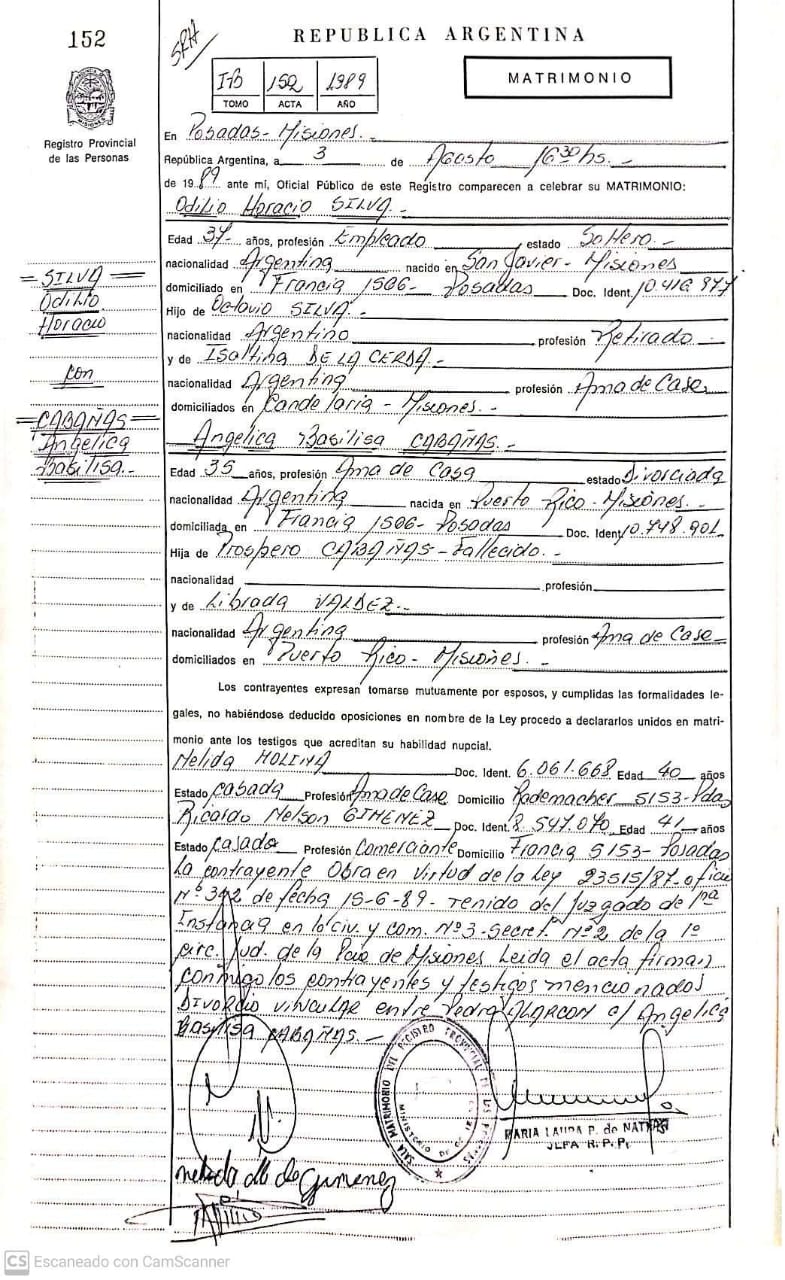 152
SRH
REPUBLICA ARGENTINA
152 1989
TOMO ACTA AÑO
MATRIMONIO
Registro Provincial
de las Personas
En Posadas - Misiones.-
República Argentina, a 3 de Agosto 16 30 hs. -
de 1989 ante mí, Oficial Público de este Registro comparecen a celebrar su MATRIMONIO:
Odilio Horacio SILVA.-
Edad 37- años, profesión Empleado estado Soltero-
nacionalidad Argentina nacido en San Javier- Misiones
domiciliado en Francia 1506- Posadas Doc. Ident. 10.416.977
Hijo de Octavio SILVA.-
nacionalidad Argentino profesión Retirado
y de Isaltina DE LA CERDA.-
nacionalidad Argentina profesión Ama de Casa
domiciliados en Candelaria - Misiones.-
Angélica Basilisa CABAÑAS.-
Edad 35 años, profesión Ama de Casa estado Divorciada
nacionalidad Argentina nacida en Puerto Rico- Misiones.
domiciliada en Francia 1506- Posadas Doc. Ident. 10.748.901
Hija de Prospero CABAÑAS - Fallecido.-
nacionalidad profesión
y de Librada VALDEZ.-
nacionalidad Argentina profesión Ama de Casa
domiciliados en Puerto Rico - Misiones. -
=SILVA=
Odilio
Horacio
con
=CABAÑAS=
Angelica
Basilisa.-
Los contrayentes expresan tomarse mutuamente por esposos, y cumplidas las formalidades le-
gales, no habiéndose deducido oposiciones en nombre de la Ley procedo a declararlos unidos en matri-
monio ante los testigos que acreditan su habilidad nupcial.
Nelida MOLINA Doc. Ident. 6.061.668 Edad 40 años
Estado casada Profesión Ama de Casa Domicilio Rademacher 5153- Pdas
Ricardo Nelson GIMENEZ Doc. Ident. 8.547.070 Edad 41- años
Estado casado Profesión Comerciante Domicilio Francia 5153- Posadas
La contrayente Obra en Virtud de la Ley 23515/87. oficio
Nº de fecha 15-6-89- del Juzgado de 1ra
Instancia en lo civ. y com. Nº3 -Secret. Nº2 de la 1º
circ. Jud. de la Pcia de Misiones Leida el acta firman
conmigo los contrayentes y testigos mencionados
Divorcio vincular entre Pedro ALARCON c/ Angelica
Basilisa CABAÑAS.-
SALA MATRIMONIO DEL REGISTRO PROVINCIAL DE LAS PERSONAS
MINISTERIO DE
MARIA LAURA P. de
JEFA R. P. P.
de Gimenez
CS Escaneado con CamScanner